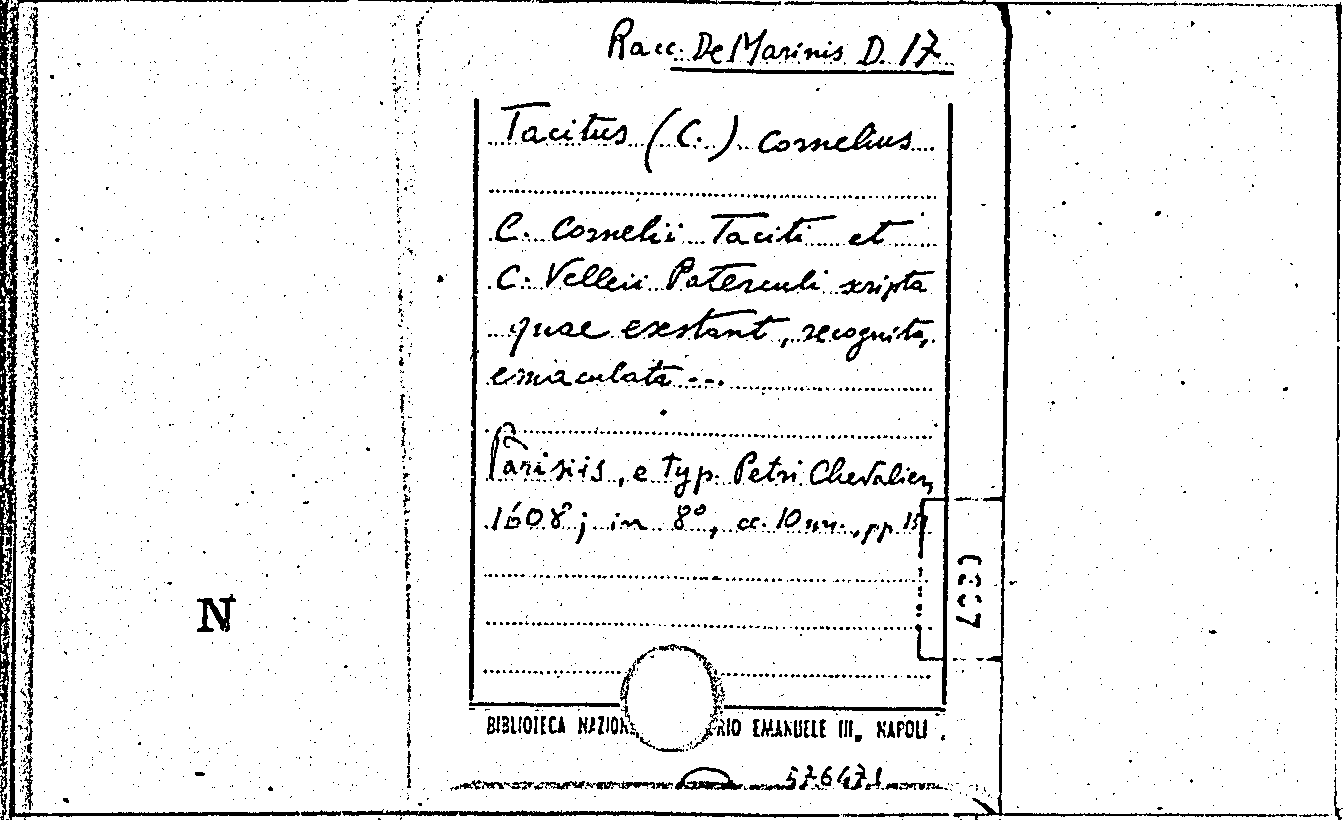 Racc. De Marinis D. 17
Tacitus (C.) Cornelius
C. Cornelii Taciti et
C. Velleii Paterculi scripta
quae exstant, recognita,
emaculata ...
Parisiis, e typ. Petri Chevalier,
1608; in 8°, cc. 10 nn., pp.
N
BIBLIOTECA NAZION RIO EMANUELE III. NAPOLI.
576471